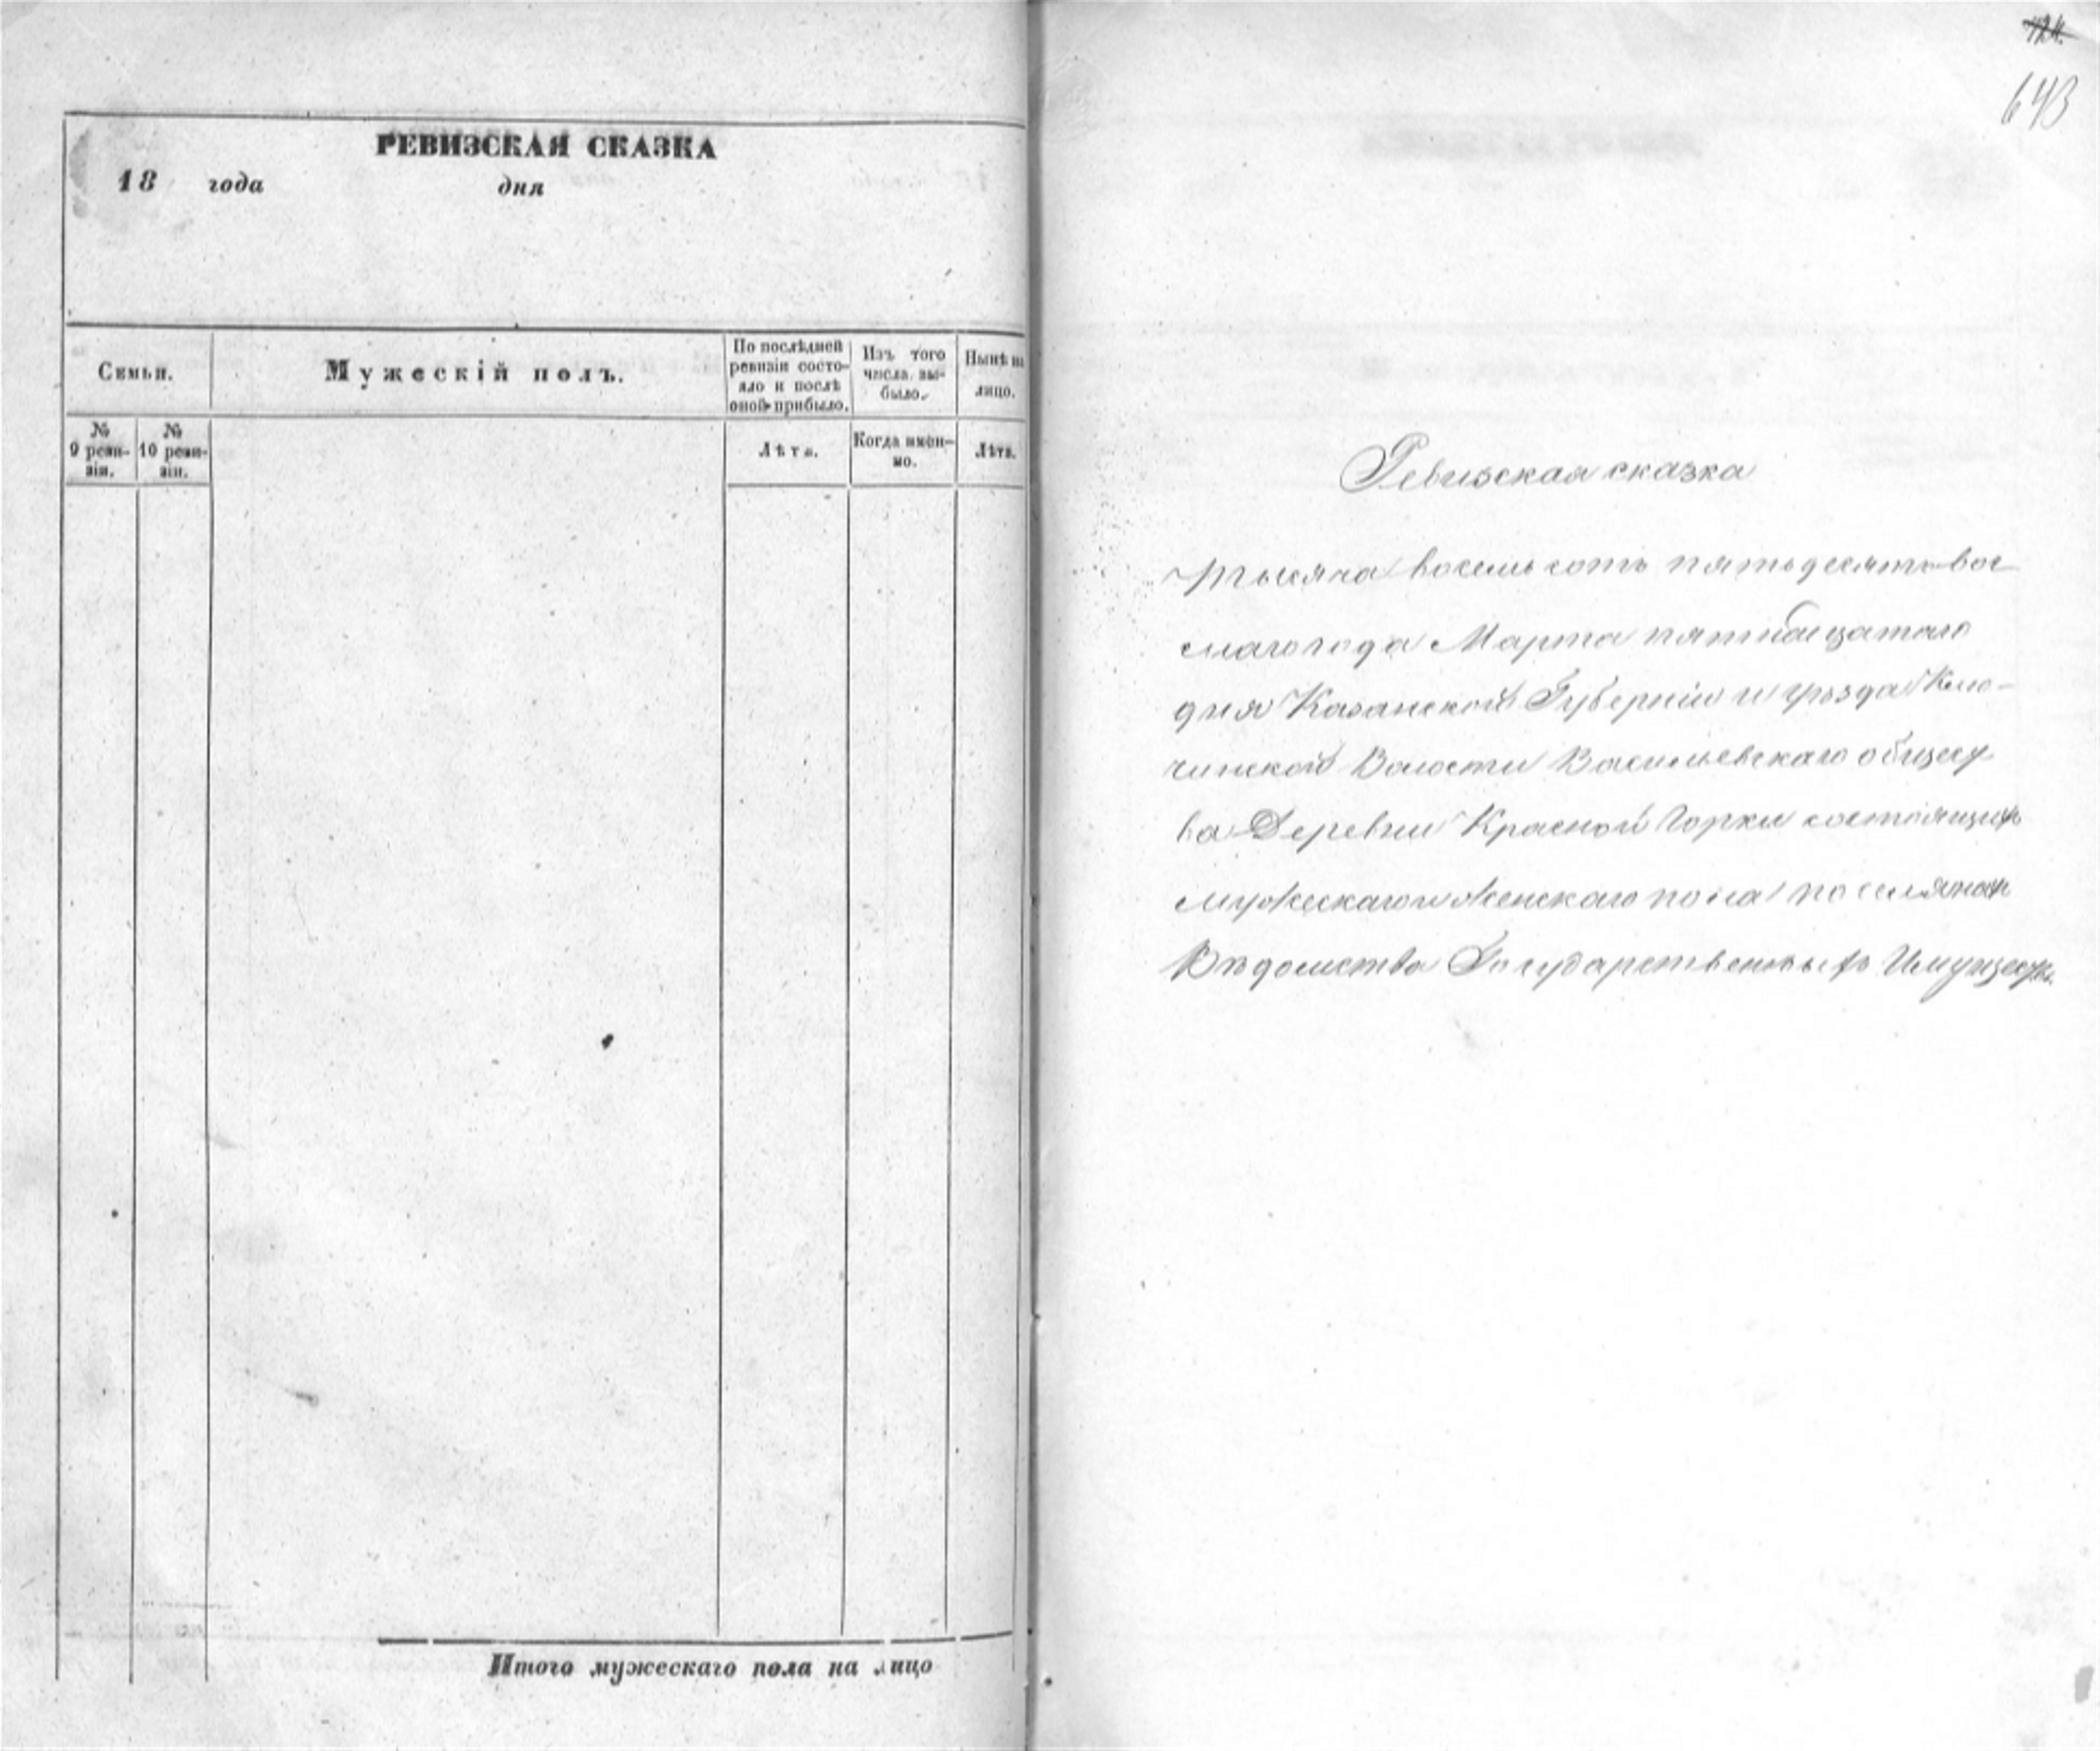 РЕВИЗСКАЯ СКАЗКА
18 года дня
Семьи.
Мужескій полъ.
По послѣдней
ревизіи состо-
яло и послѣ
оной прибыло.
Изъ того
числа вы-
было.
Нынѣ на
лицо.
№
9 реви-
зіи.
№
10 реви-
зіи.
Лѣта.
Когда имен-
но.
Лѣта.
Итого мужескаго пола на лицо
643
Ревизская сказка
Тысяча восемь сотъ пятьдесятъ вос
маго года Марта пятнадцатаго
дня Казанской Губерніи и уѣзда Клю-
чинской Волости Васильевскаго общест
ва Деревни Красной Горки состоящихъ
мужескаго и женскаго пола поселянахъ
Вѣдомства Государственныхъ Имуществъ.